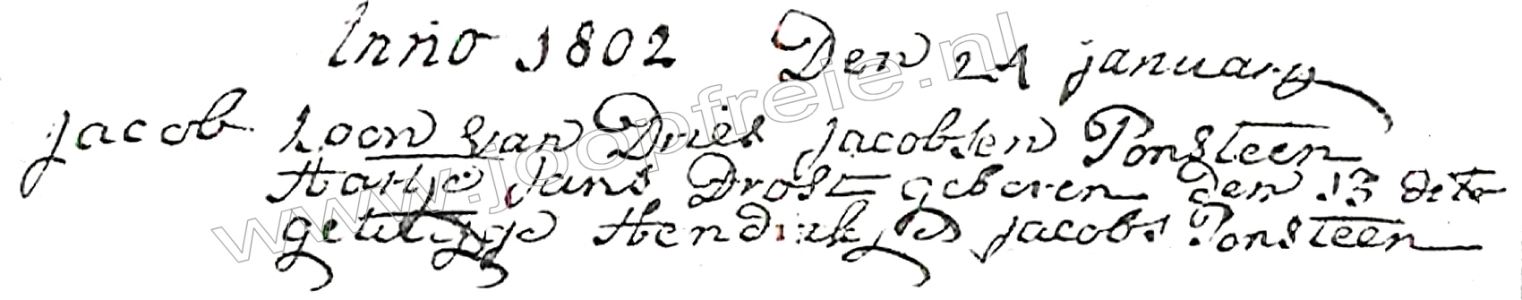 Anno 1802 Den 24 january
jacob zoon van Dries jacobsen Ponsteen
Hattje Jans Drost geboren den 13 ditto
getuijge Hendrikjes jacobs Ponsteen
www.joopfreie.nl